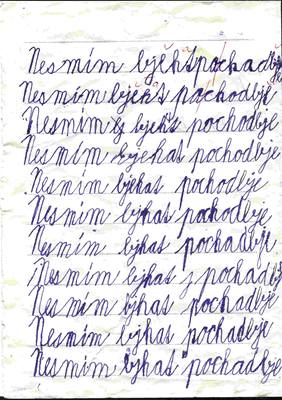 Nesmím bjěhat pochadbje
Nesmím bjehat pachodbje
Nesmím bjehat pochodbje
Nesmím bjehat pochodbje
Nesmím bjehat pochodbje
Nesmím bjhat pochodbje
Nesmím bjhat pochadbje
Nesmím bjhat pochadbje
Nesmím bjhat pochodbje
Nesmím bjhat pochadbje
Nesmím bjhat pochadbje